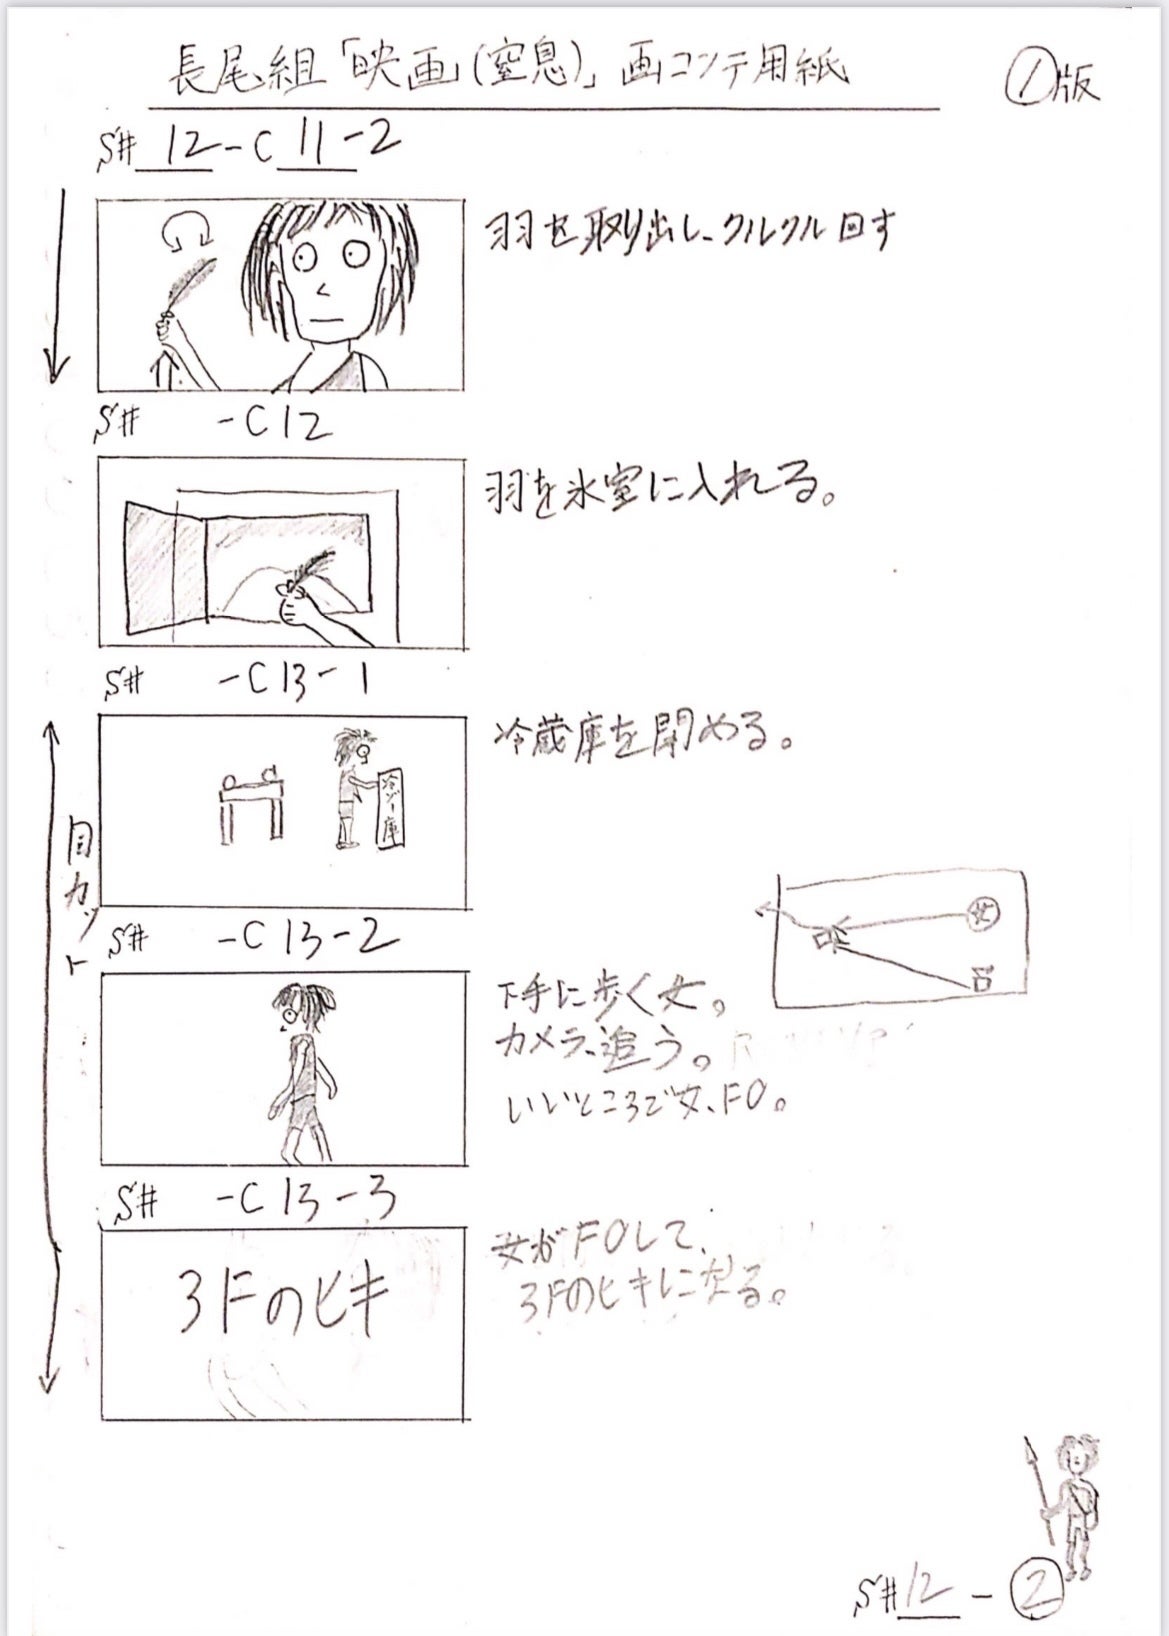 長尾組「映画(窒息)」画コンテ用紙
①版
S# 12-C 11-2
羽を取り出し、クルクル回す
S# -C12
羽を氷室に入れる。
S# -C13-1
冷蔵庫を閉める。
冷ゾー庫
同カット
S# -C13-2
女
下手に歩く女。
カメラ、追う。
いいところで女、FO。
S# -C13-3
3Fのヒキ
女がFOして、
3Fのヒキになる。
S#12-②